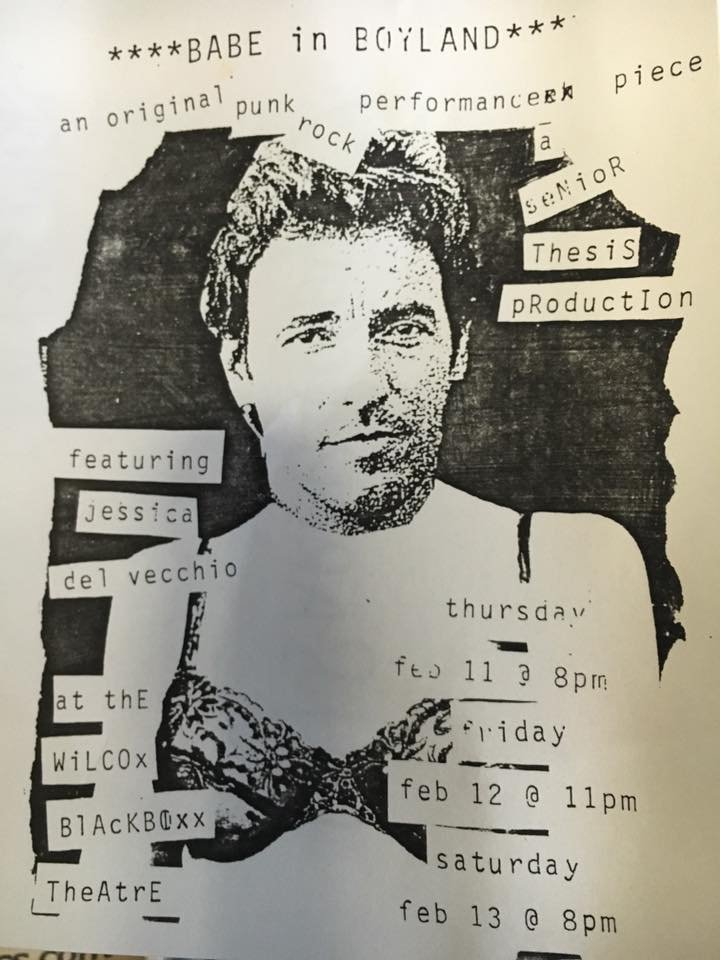 ****BABE in BOYLAND***
an original punk rock performance piece
a
seNioR
ThesiS
pRoductIon
featuring
jessica
del vecchio
at thE
WiLCOx
BlAcKBOxx
TheAtrE
thursday
feb 11 @ 8pm
friday
feb 12 @ 11pm
saturday
feb 13 @ 8pm